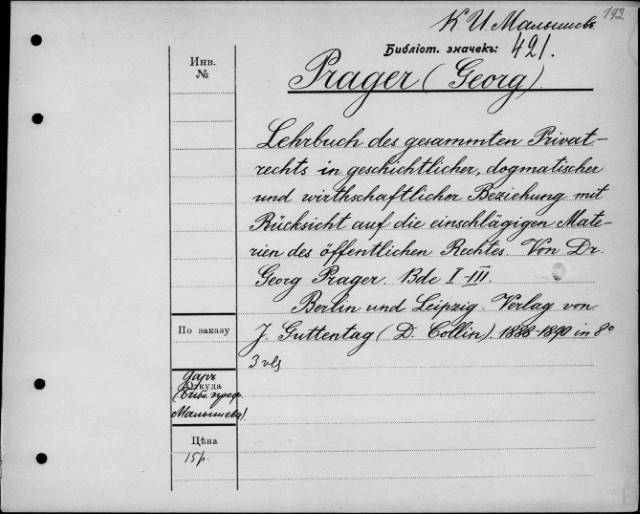 192
К. И. Малышевъ
Библіот. значекъ: 421.
Инв.
№
Prager (Georg).
Lehrbuch des gesammten Privat-
rechts in geschichtlicher, dogmatischer
und wirthschaftlicher Beziehung mit
Rücksicht auf die einschlägigen Mate-
rien des öffentlichen Rechtes. Von Dr.
Georg Prager. Bde I-III.
Berlin und Leipzig. Verlag von
J. Guttentag (D. Collin). 1888-1890 in 8°
3 vls
По заказу
Даръ
Откуда
(Библ. проф.
Малышева).
Цѣна
15р.